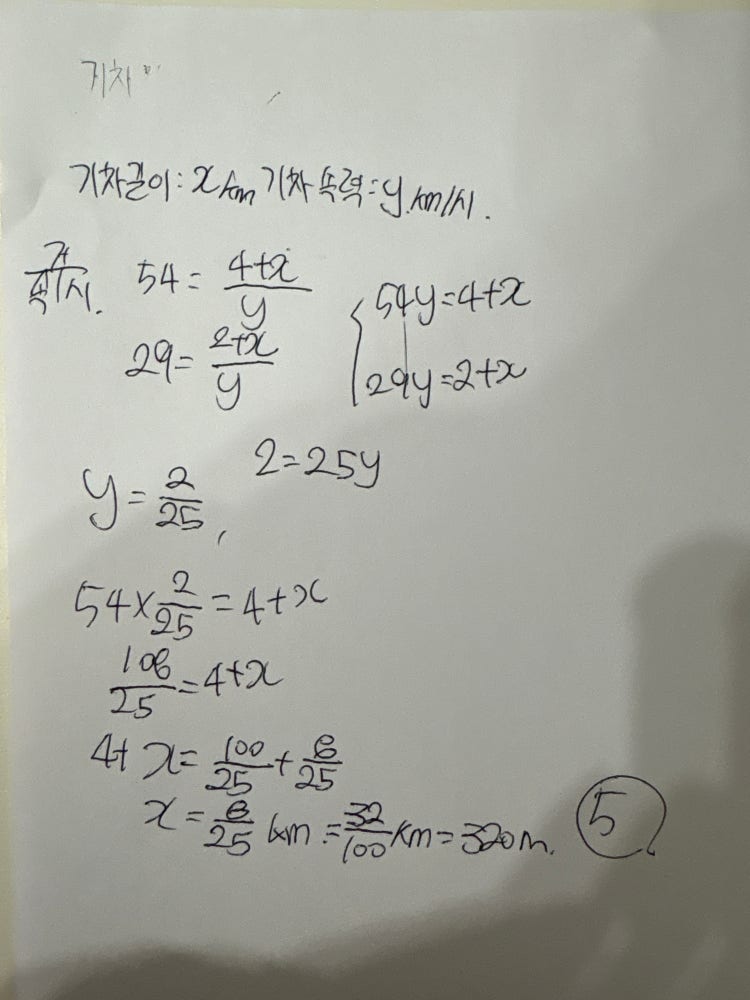 기차
기차길이: x km 기차 속력: y km/시.
거
속|시. 54 = (4+x)/y
29 = (2+x)/y
54y=4+x
29y=2+x
2=25y
y = 2/25,
54 × 2/25 = 4+x
108/25 = 4+x
4+ x = 100/25 + 8/25
x = 8/25 km = 32/100 km = 320m. 5